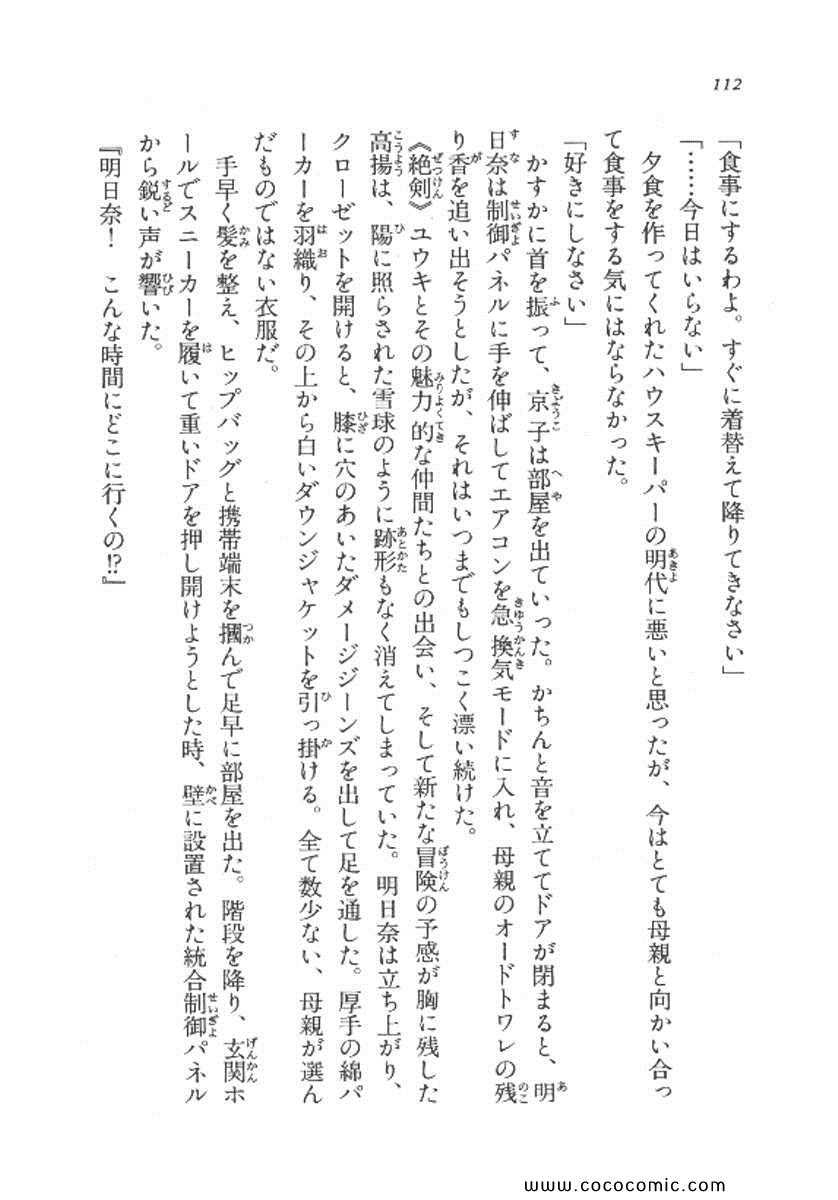 112
「食事にするわよ。すぐに着替えて降りてきなさい」
「……今日はいらない」
夕食を作ってくれたハウスキーパーの明代に悪いと思ったが、今はとても母親と向かい合っ
て食事をする気にはならなかった。
「好きにしなさい」
かすかに首を振って、京子は部屋を出ていった。かちんと音を立ててドアが閉まると、明
日奈は制御パネルに手を伸ばしてエアコンを急換気モードに入れ、母親のオードトワレの残
り香を追い出そうとしたが、それはいつまでもしつこく漂い続けた。
《絶剣》ユウキとその魅力的な仲間たちとの出会い、そして新たな冒険の予感が胸に残した
高揚は、陽に照らされた雪球のように跡形もなく消えてしまっていた。明日奈は立ち上がり、
クローゼットを開けると、膝に穴のあいたダメージジーンズを出して足を通した。厚手の綿パ
ーカーを羽織り、その上から白いダウンジャケットを引っ掛ける。全て数少ない、母親が選ん
だものではない衣服だ。
手早く髪を整え、ヒップバッグと携帯端末を摑んで足早に部屋を出た。階段を降り、玄関ホ
ールでスニーカーを履いて重いドアを押し開けようとした時、壁に設置された統合制御パネル
から鋭い声が響いた。
『明日奈！　こんな時間にどこに行くの!?』
www.cococomic.com